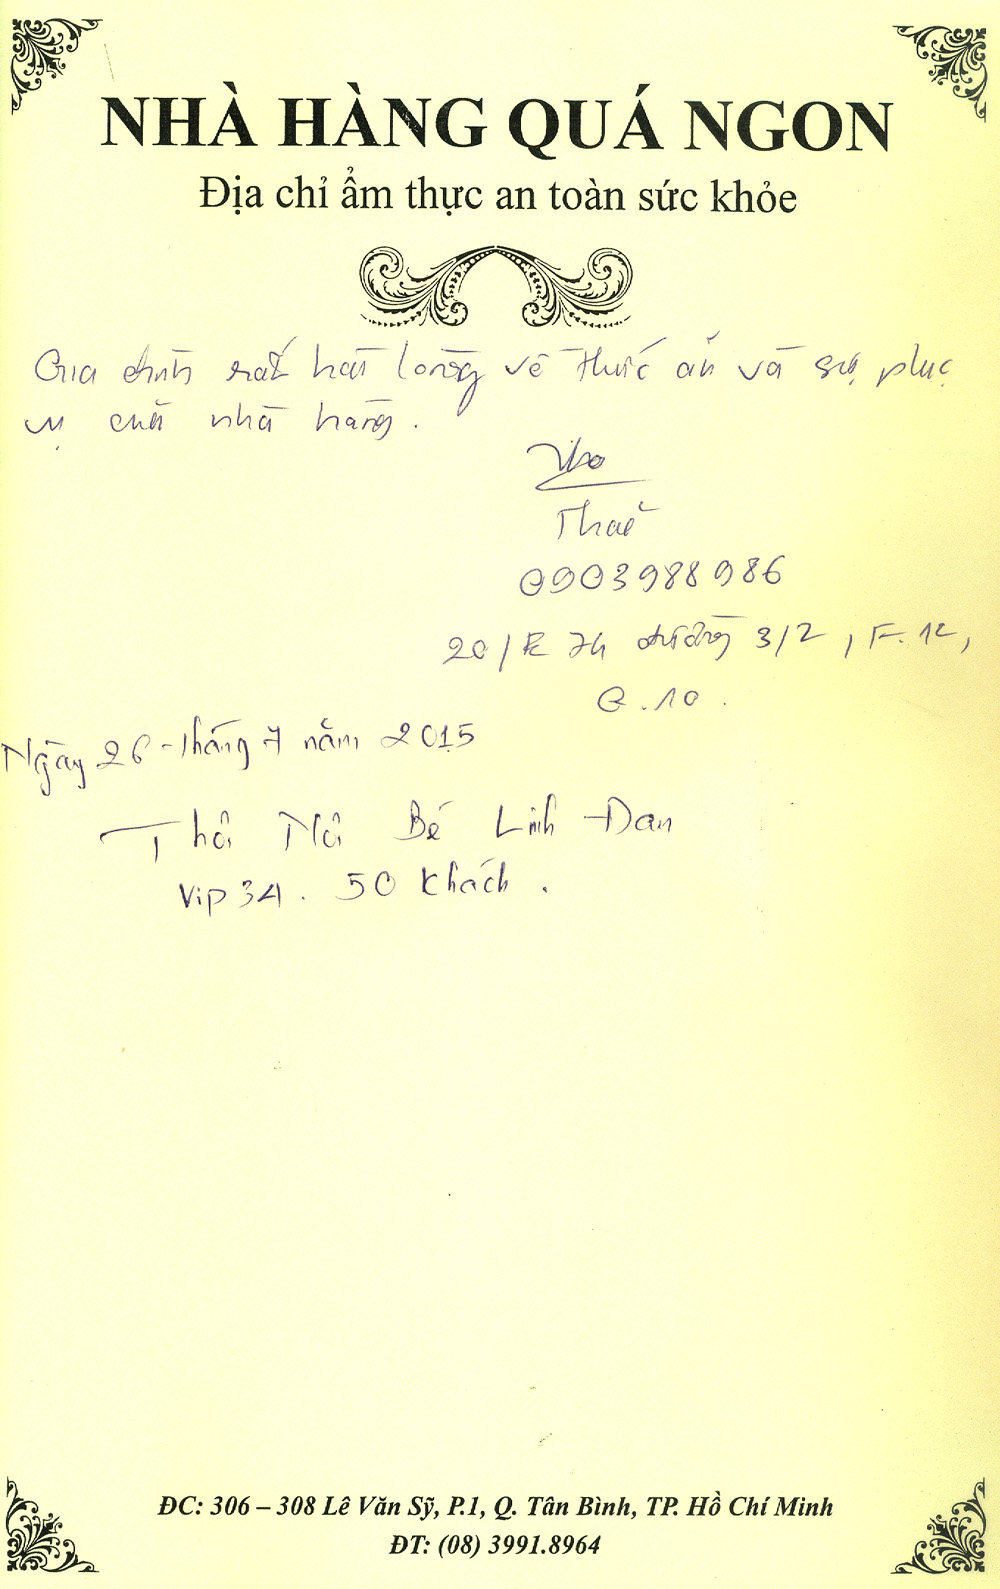 NHÀ HÀNG QUÁ NGON
Địa chỉ ẩm thực an toàn sức khỏe
Gia đình rất hài lòng về thức ăn và sự phục
vụ của nhà hàng.
0903988986
đường 3/2, F.12,
Q.10.
Ngày 26 tháng 7 năm 2015
Thôi Nôi Bé Linh Đan
Vip 34. 50 khách.
ĐC: 306 – 308 Lê Văn Sỹ, P.1, Q. Tân Bình, TP. Hồ Chí Minh
ĐT: (08) 3991.8964